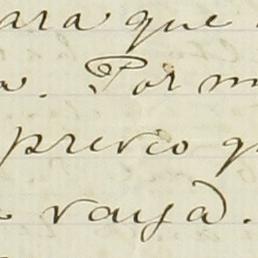 ara que
a. Por m
preveo q
vaya.